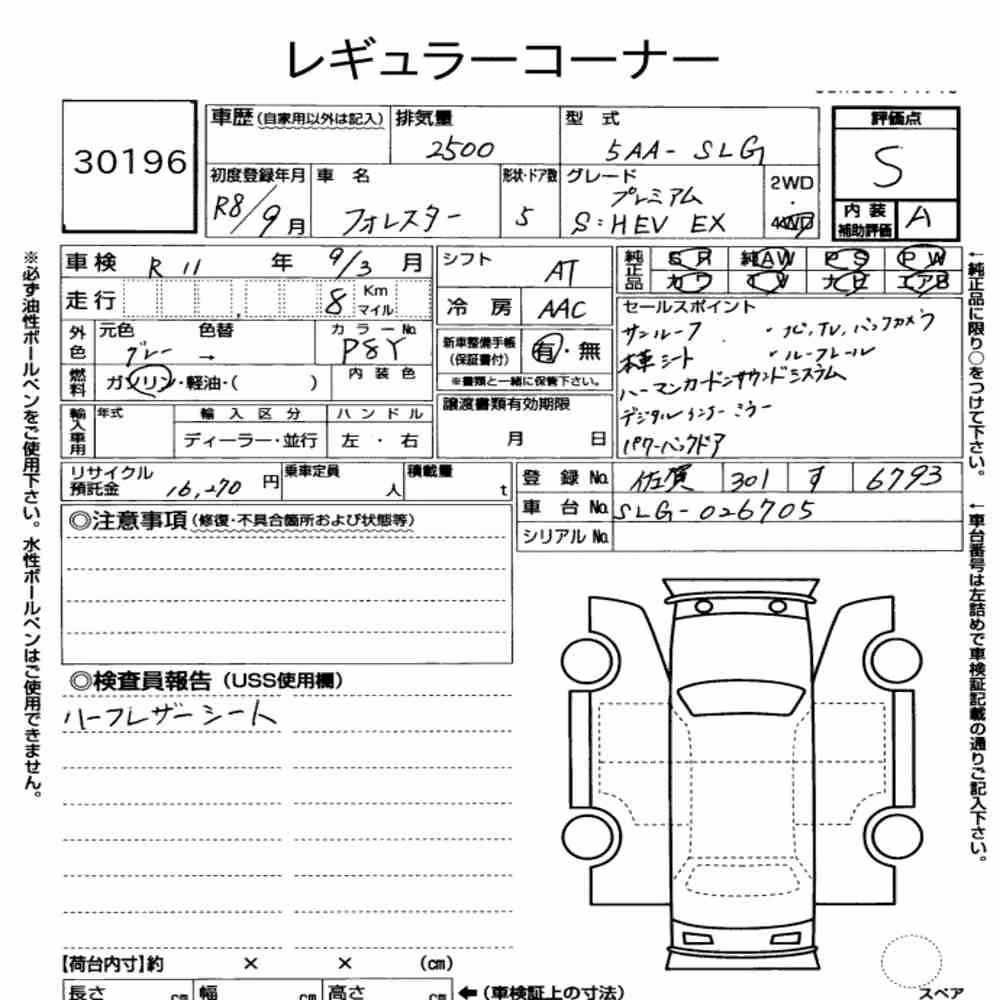 レギュラーコーナー
30196
車歴 (自家用以外は記入)
排気量
2500
型 式
5AA-SLG
評価点
S
初度登録年月
R8/9月
車 名
フォレスター
形状・ドア数
5
グレード
プレミアム
S:HEV EX
2WD
・
4WD
内 装
補助評価
A
車検 R 11 年 9/3 月
走行 8 Km マイル
外色
元色
グレー
色替
→
カラーNo.
P8Y
燃料
ガソリン・軽油・( )
内 装 色
輸入車用
年式
輸 入 区 分
ディーラー・並行
ハ ン ド ル
左 ・ 右
シフト
AT
冷 房
AAC
新車整備手帳
(保証書付)
有・無
※書類と一緒に保管下さい。
譲渡書類有効期限
月 日
純正品
SR 純AW PS PW
カワ TV ナビ エアB
セールスポイント
サンルーフ
・ナビ,TV,バックカメラ
本革シート
・ルーフレール
ハーマンカードンサウンドシステム
デジタルインナーミラー
パワーバックドア
リサイクル
預託金
16,270 円
乗車定員
人
積載量
t
登 録 No. 佐賀 301 す 6793
車 台 No. SLG-026705
シリアル No.
◎注意事項 (修復・不具合箇所および状態等)
◎検査員報告 (USS使用欄)
ハーフレザーシート
【荷台内寸】約 × × (cm)
長さ cm 幅 cm 高さ cm ←(車検証上の寸法)
スペア
※必ず油性ボールペンをご使用下さい。水性ボールペンはご使用できません。
←純正品に限り○をつけて下さい。
←車台番号は左詰めで車検証記載の通りご記入下さい。